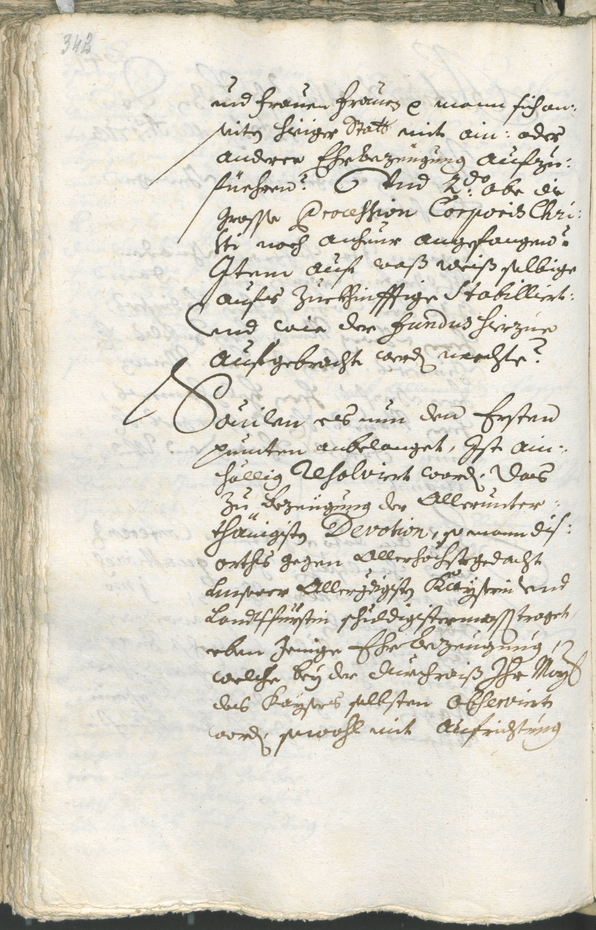 342
und frauen frauen etc wann sich an-
seiten hieiger Statt mit ain: oder
anderer Ehrbezeugung aufzu:
füehren? Und 2do obe die
grosse Procession Corporis Chri:
sti noch anheur angefangen?
Item auf waß weiß selbige
aufs zuekhinfftige Stabilliert:
und wie der fundus hierzue
aufgebracht werden mechte?
Souilen es nun den Ersten
puncten anbelanget, Ist ain:
hällig Resolvirt worden. Das
zu bezeugung der Allerunter:
thänigisten Devotion, so mann dis:
orths gegen Allerhöchstgedacht
Unserer Allergdigisten Kayserin und
Landtsfürstin schuldigistermassen traget
eben Jenige Ehrbezeugung,
welche bey der durchraiß Ihr Mayt
des Kaysers selbsten observirt
worden, sowohl mit Aufrichtung